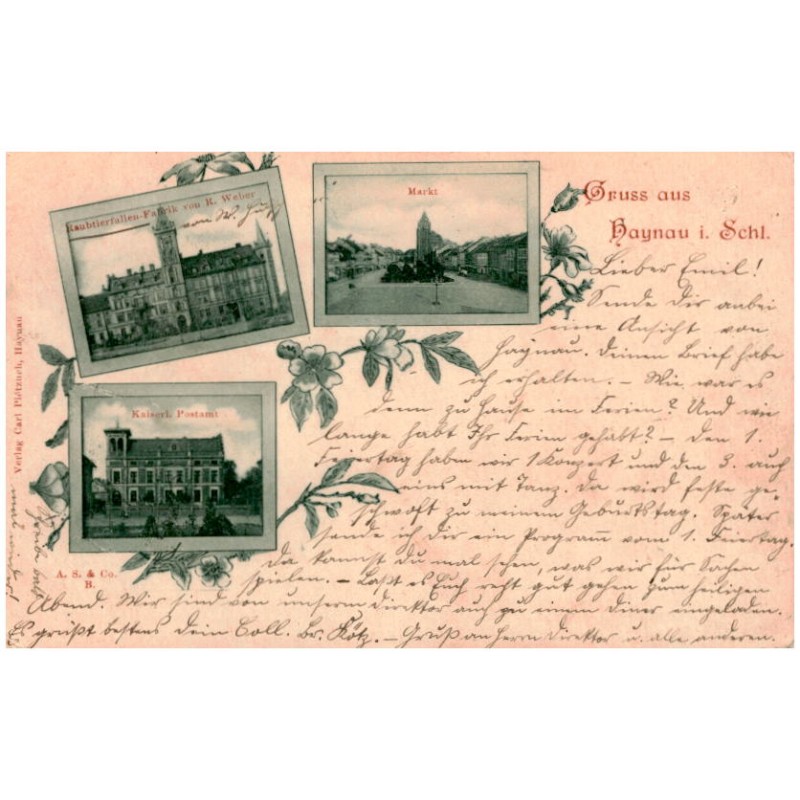 Raubtierfallen-Fabrik von R. Weber
von W.
Markt
Gruss aus
Haynau i. Schl.
Kaiserl. Postamt
Verlag Carl Plötzneh, Haynau
A. S. & Co.
B.
Lieber Emil!
Sende Dir anbei
eine Ansicht von
Haynau. Deinen Brief habe
ich erhalten. – Wie war es
denn zu Hause im Ferien? Und wie
lange habt Ihr Ferien gehabt? – Den 1.
Feiertag haben wir 1 Konzert und den 3. auch
eins mit Tanz. Da wird feste ge-
schwoft zu meinem Geburtstag. Später
sende ich Dir ein Programm vom 1. Feiertag.
Da kannst Du mal sehen, was wir für Sachen
spielen. – Laßt es Euch recht gut gehen zum heiligen
Abend. Wir sind von unserm Direktor auch zu einem Diner eingeladen.
Es grüßt bestens Dein Coll. Br. Kötz. – Gruß an Herrn Direktor u. alle anderen.
Schreibe bald
mal wieder!